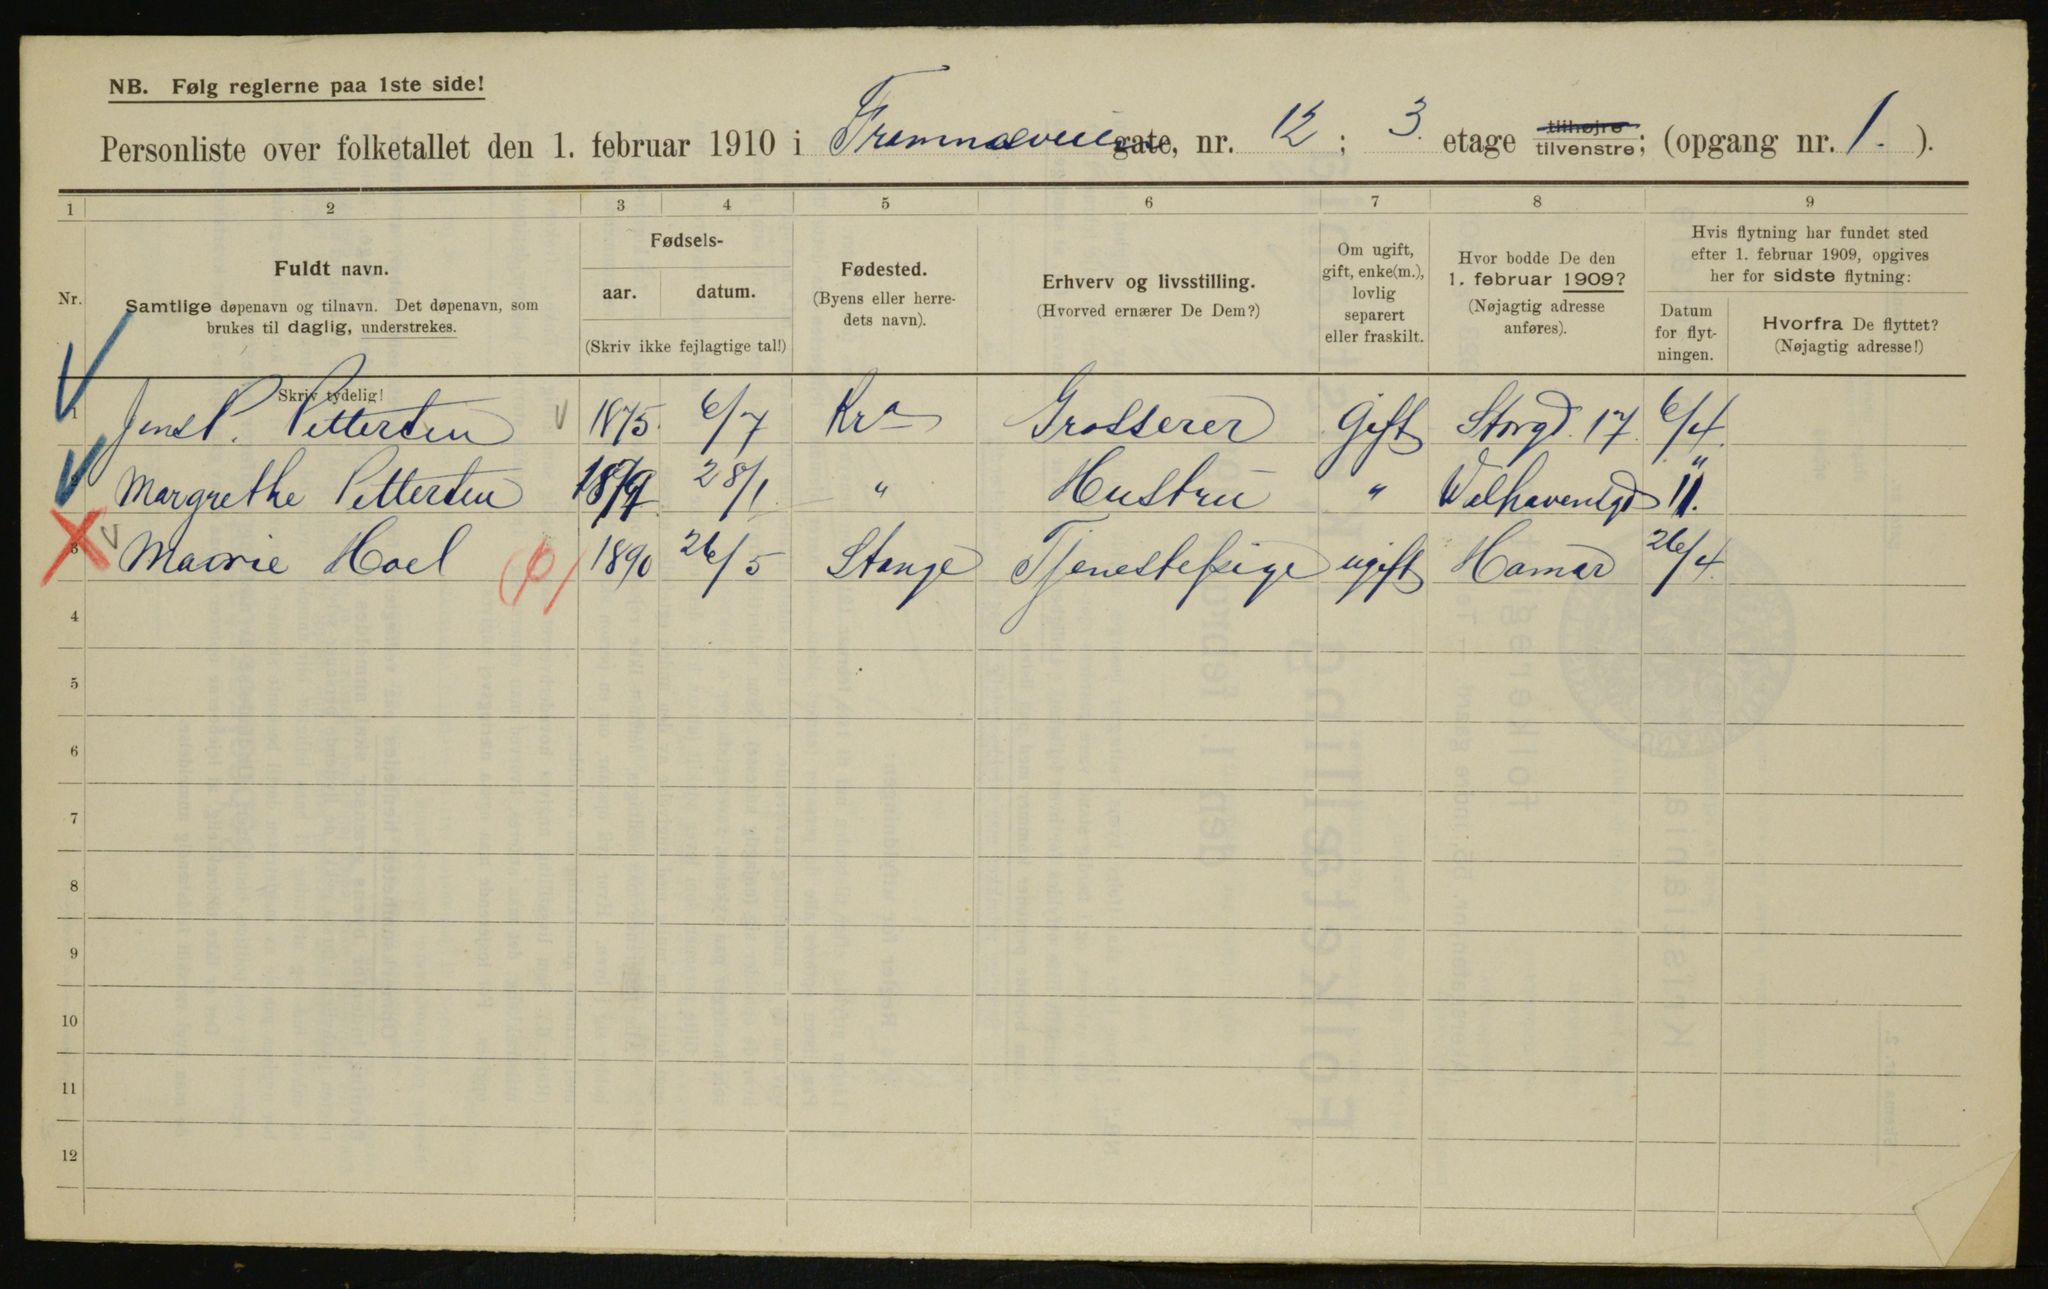 NB. Følg reglerne paa 1ste side!
Personliste over folketallet den 1. februar 1910 i Framnæsveien gate, nr. 12 ; 3. etage tilhøjre tilvenstre; (opgang nr. 1. ).
1 2 3 4 5 6 7 8 9
Nr.
Fuldt navn.
Samtlige døpenavn og tilnavn. Det døpenavn, som
brukes til daglig, understrekes.
Skriv tydelig!
Fødsels-
aar. datum.
(Skriv ikke fejlagtige tal!)
Fødested.
(Byens eller herre-
dets navn).
Erhverv og livsstilling.
(Hvorved ernærer De Dem?)
Om ugift,
gift, enke(m.),
lovlig
separert
eller fraskilt.
Hvor bodde De den
1. februar 1909?
(Nøjagtig adresse
anføres).
Hvis flytning har fundet sted
efter 1. februar 1909, opgives
her for sidste flytning:
Datum
for flyt-
ningen.
Hvorfra De flyttet?
(Nøjagtig adresse!)
1 Jens P. Pettersen 1875 6/7 Kra Grosserer Gift Storgd. 17. 6/4.
2 Margrethe Pettersen 28/1 " Hustru " Welhavensgd 11. "
3 Hoel 1890 26/5 Stange Tjenestepige ugift Hamar 26/4.
4
5
6
7
8
9
10
11
12